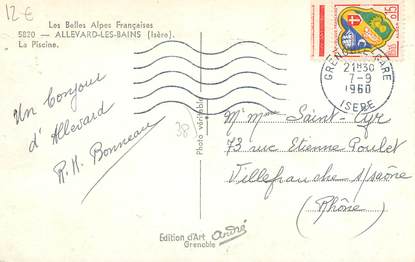 12€
Les Belles Alpes Françaises
5820 - ALLEVARD-LES-BAINS (Isère).
La Piscine.
0,15
GRENOBLE GARE
21H30
7-9
1960
ISERE
Un bonjour
d'Allevard
R. H. Bonneau
38
Photo véritable
Mr Mme Saint-Cyr
73 rue Etienne Poulet
Villefranche s/saône
(Rhône)
Edition d'Art André
Grenoble